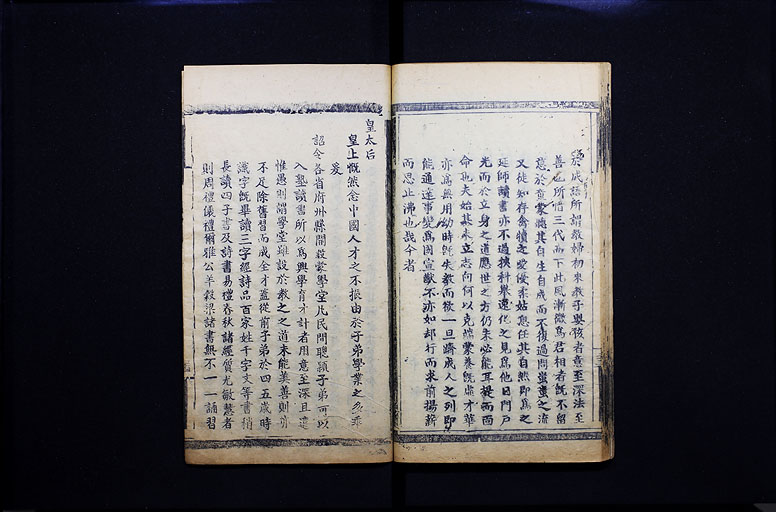 於成語所謂教婦初來教子嬰孩者意至深法至
善也所惜三代而下此風漸微為君相者既不留
意於童蒙聽其自生自成而不復過問蚩蚩之流
又徒知存禽犢之愛優柔姑息任其自然即為之
延師讀書亦不過挾科舉遷化之見為他日門戶
光而於立身之道應世之方仍未必能耳提而面
命也夫始其未立志向何以克端蒙養既虛才華
亦為無用幼時既失教而欲一旦躋成人之列即
能通達事變為國宣猷不亦如却行而求前揚薪
而思止沸也哉今者
皇太后
皇上慨然念中國人才之不振由於子弟學業之多乖
爰
詔令各省府州縣開設蒙學堂凡民間聰穎子弟可以
入塾讀書所以為興學育才計者用意至深且遠
惟愚則謂學堂雖設於教之之道未能美善則
不足除舊習而成全才蓋從前子弟於四五歲時
識字既畢讀三字經詩品百家姓千字文等書稍
長讀四子書及詩書易禮春秋諸經質尤敏慧者
則周禮儀禮爾雅公羊穀梁諸書無不一一誦習